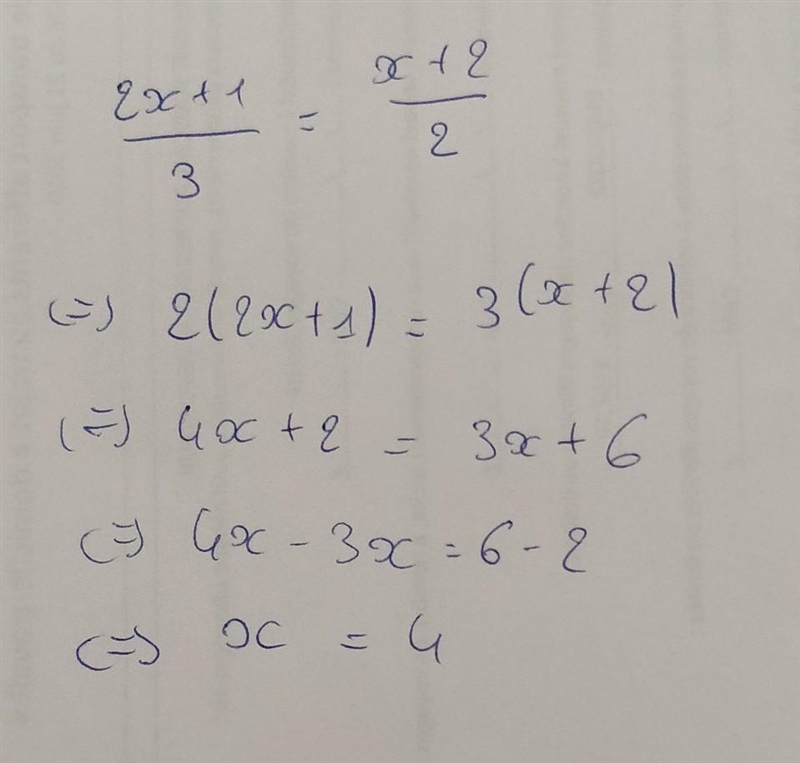 (2x+1)/3 = (x+2)/2
(=) 2(2x+1) = 3(x+2)
(=) 4x+2 = 3x+6
(=) 4x-3x=6-2
(=) x = 4